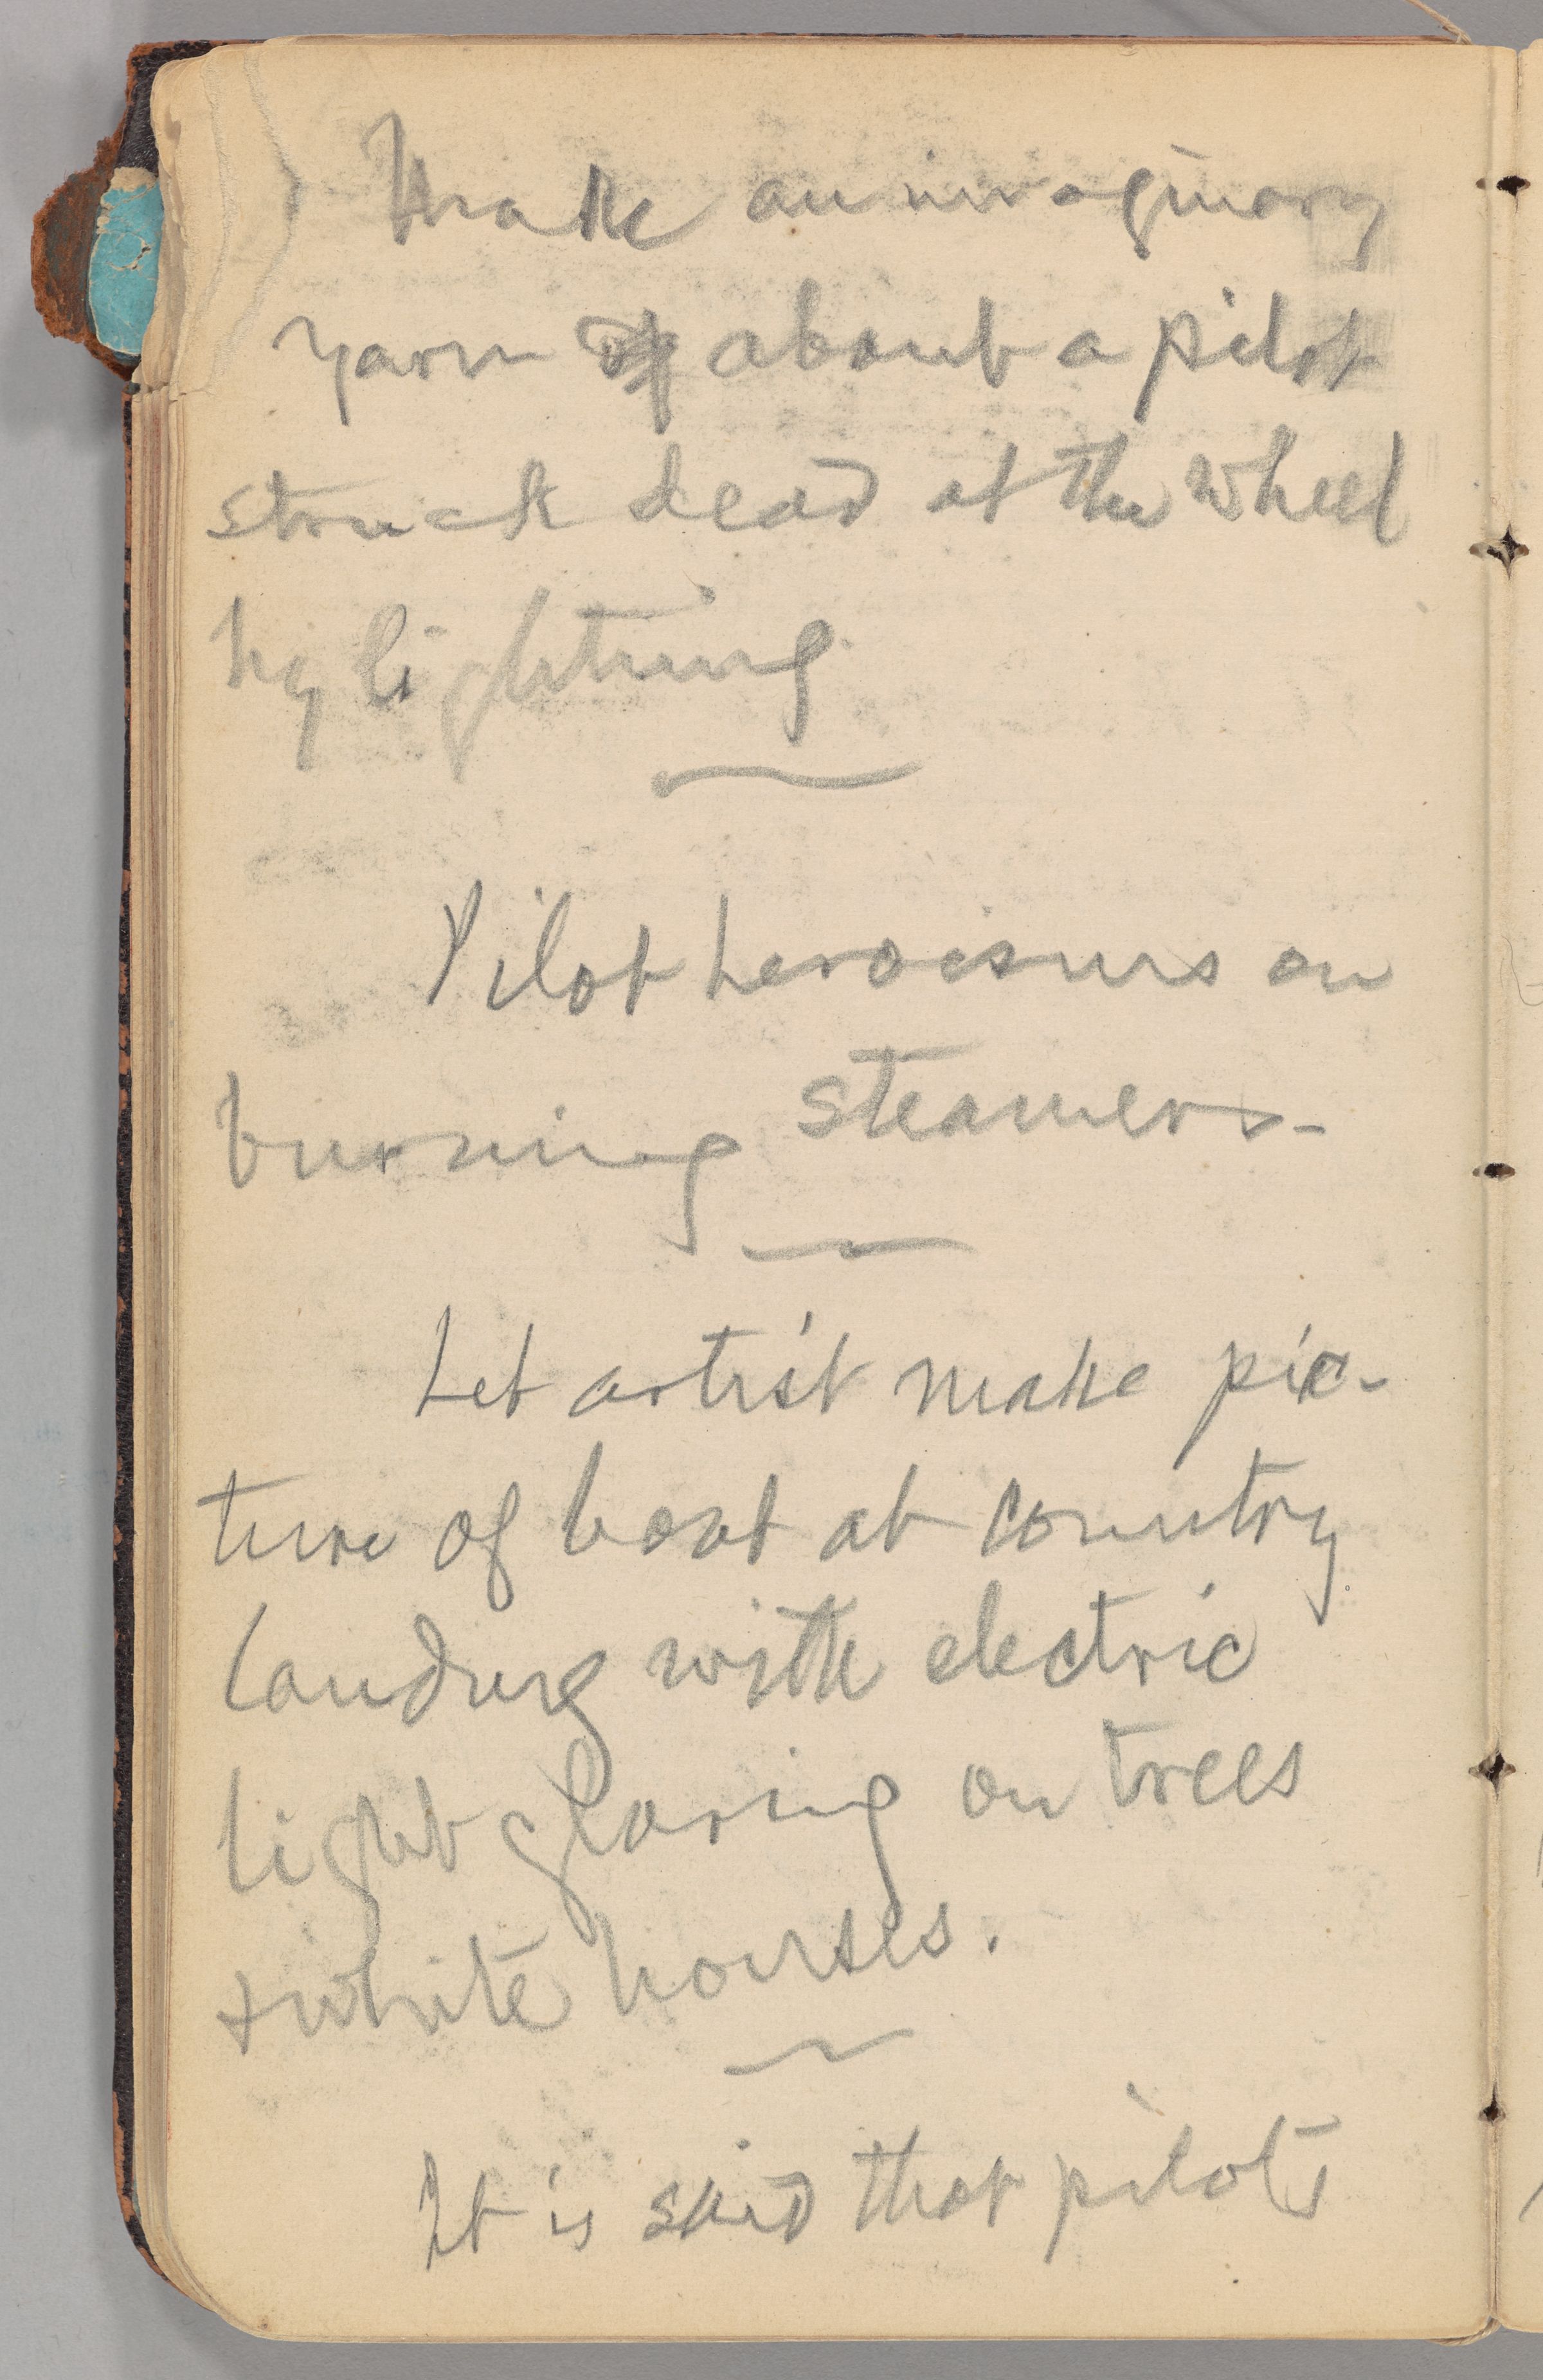 Make an imaginary
yarn of about a pilot
struck dead at the wheel
by lightning
Pilot heroisms on
burning steamers-
Let artist make pic-
ture of boat at country
landing with electric
light glaring on trees
& white houses.
It is said that pilots